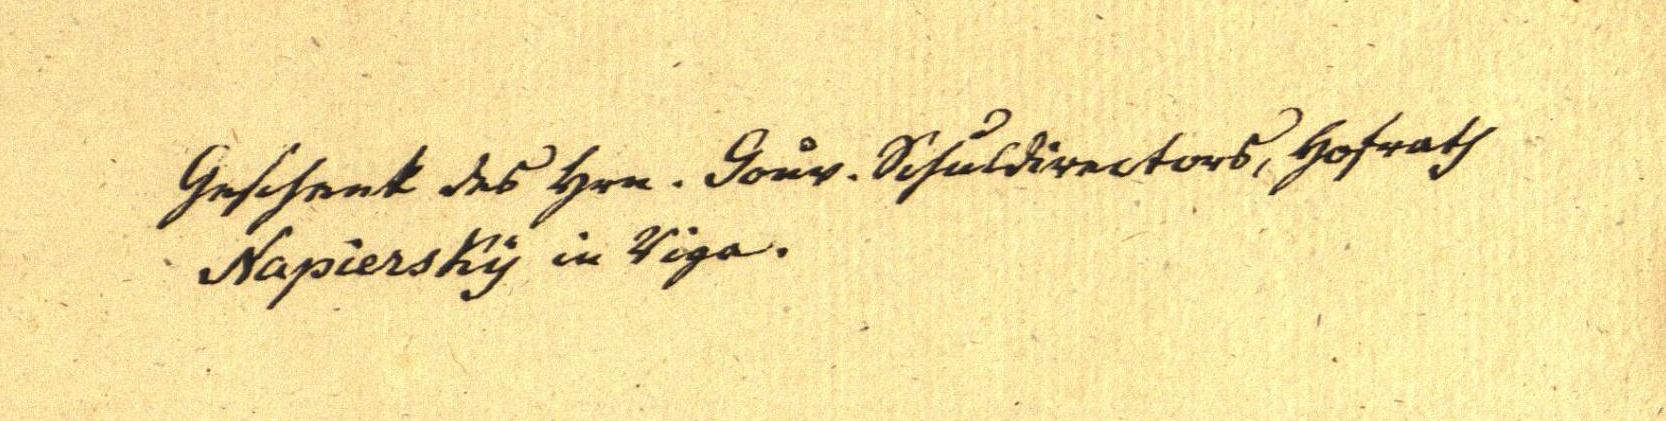 Geschenk des Hrn. Gouv. Schuldirectors, Hofrath
Napiersky in Riga.